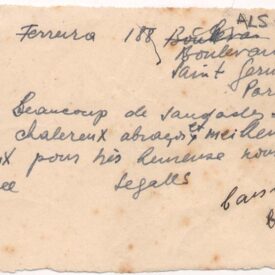 ALS
Ferreira 188 Boulevar
Boulevar
Saint Germ
Par
Beaucoup de saudades
chaleureux abraços et meille
x pour très heureuse nou
ee Segall